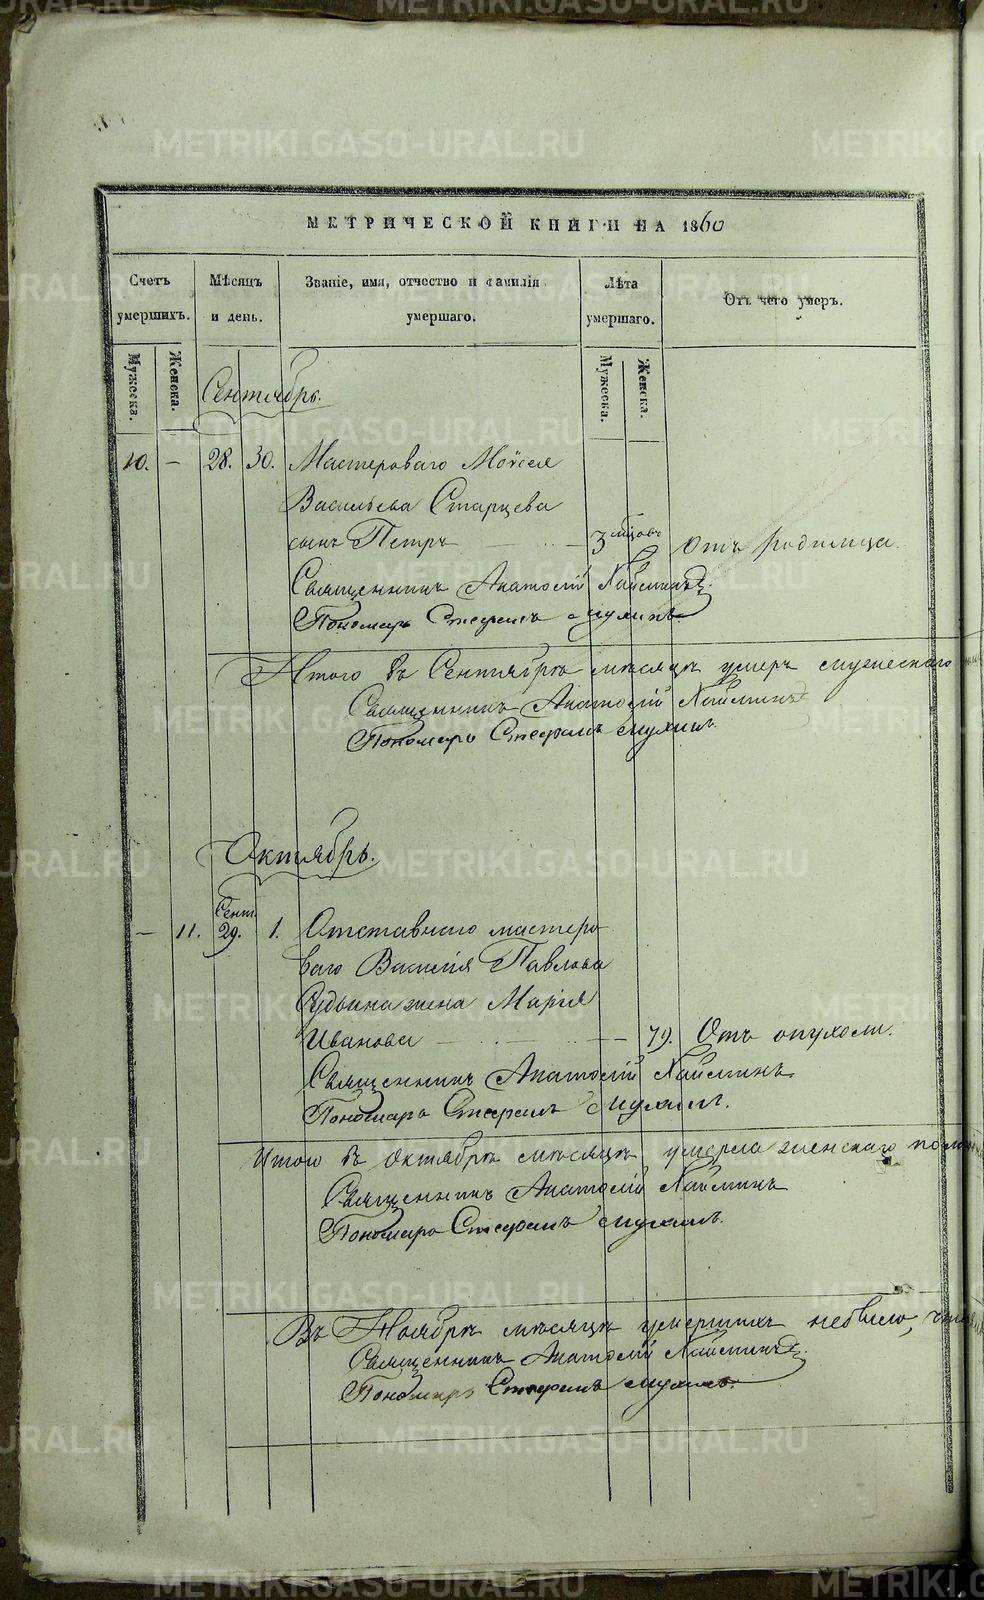 МЕТРИЧЕСКОЙ КНИГИ НА 1860
Счетъ умершихъ.
Мѣсяцъ и день.
Званіе, имя, отчество и фамилія умершаго.
Лѣта умершаго.
Отъ чего умеръ.
Мужеска.
Женска.
Мужеска.
Женска.
Сентябрь.
10. — 28. 30. Мастероваго Моѵсея
Васильева Старцева
сынъ Петръ — 3 мѣцовъ Отъ родимца.
Священникъ Анатолій Хаймин
Пономарь Стефанъ Мухинъ
Итого въ Сентябрѣ мѣсяцѣ умеръ мужескаго
Священникъ Анатолій Хайминъ
Пономарь Стефанъ Мухинъ.
Октябрь.
— 11. Сент. 29. 1. Отставнаго мастеро
ваго Василія Павлова
жена Марія
Иванова — 79. Отъ опухоли.
Священникъ Анатолій Хайминъ.
Пономарь Стефанъ Мухинъ.
Итого въ Октябрѣ мѣсяцѣ умерла женскаго пола
Священникъ Анатолій Хайминъ
Пономарь Стефанъ Мухинъ.
Въ Ноябрѣ мѣсяцѣ умершихъ небыло,
Священникъ Анатолій Хайминъ
Пономарь Стефанъ Мухинъ.
METRIKI.GASO-URAL.RU